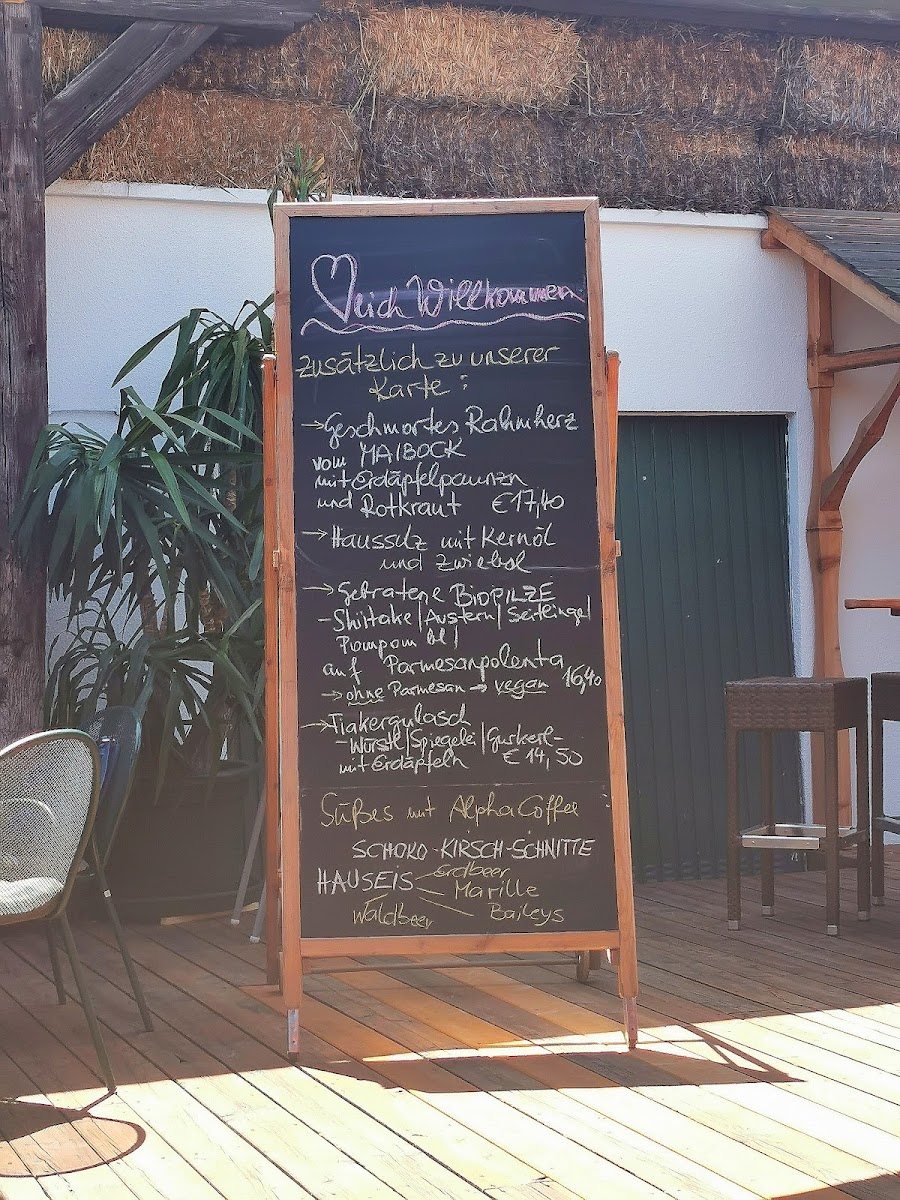 ♥lich Willkommen
Zusätzlich zu unserer
Karte:
→ Geschmortes Rahmherz
vom MAIBOCK
mit Erdäpfelpaunzn
und Rotkraut €17,40
→ Haussulz mit Kernöl
und Zwiebel
→ Gebratene BIOPILZE
- Shiitake | Austern | Seitlingel
Pompom bl |
auf Parmesanpolenta
→ ohne Parmesan → vegan 16,40
→ Fiakergulasch
- Würstl | Spiegelei | Gurkerl -
mit Erdäpfeln €14,50
Süßes mit AlphaCoffee
SCHOKO-KIRSCH-SCHNITTE
HAUSEIS Erdbeer
Marille
Waldbeer Baileys